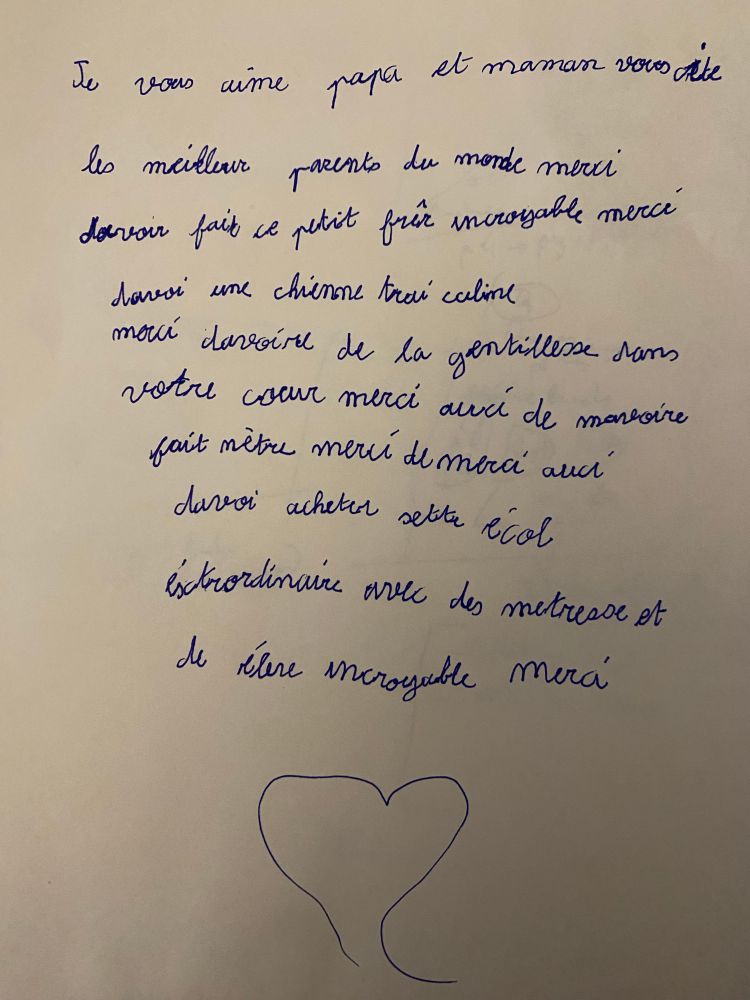 Je vous aime papa et maman vous ète
les meilleur parents du monde merci
davoir fait ce petit frêr incroyable merci
davoi une chienne trai caline
merci davoire de la gentillesse dans
votre coeur merci auci de mavoire
fait nètre merci de merci auci
davoi acheter sette école
éxtrordinaire avec des metresse et
de élere incroyable merci